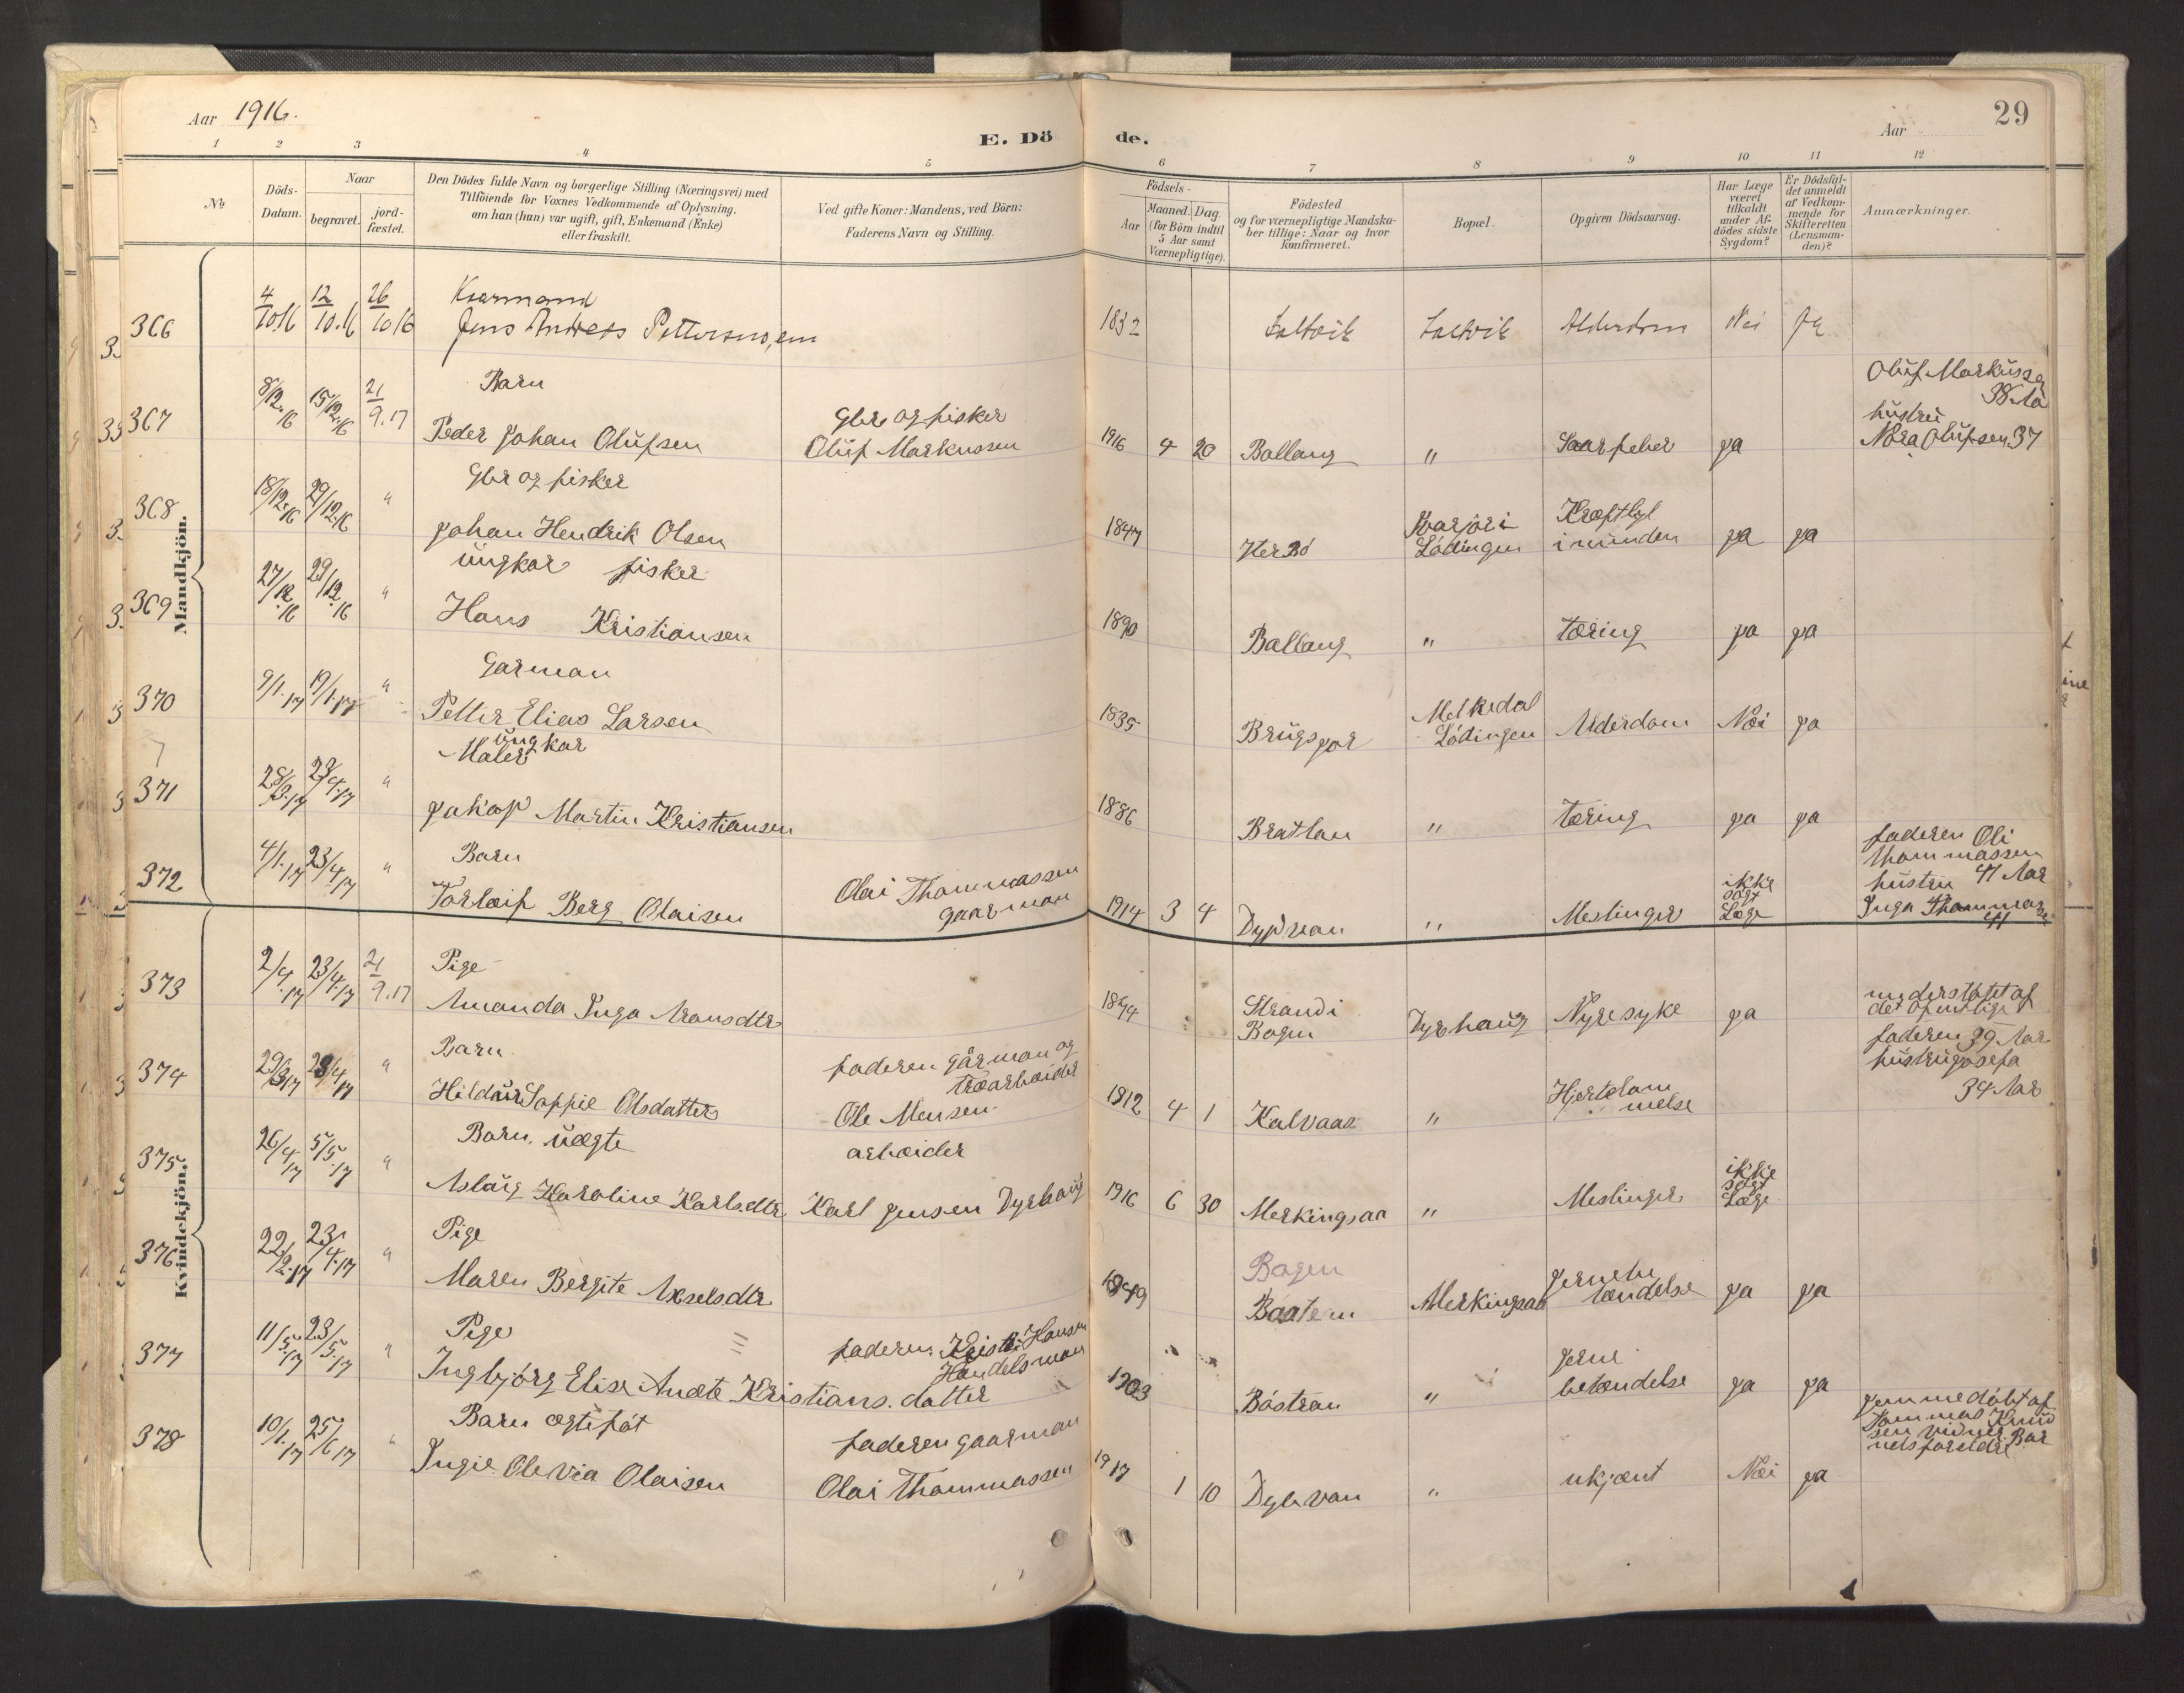 Aar 1916.
E. Dö de.
Aar
29
1 2 3 4 5 6 7 8 9 10 11 12
No
Döds-
Datum.
Naar
begravet.
jord-
fæstet.
Den Dödes fulde Navn og borgerlige Stilling (Næringsvei) med
Tilföiende for Voxnes Vedkommende af Oplysning,
om han (hun) var ugift, gift, Enkemand (Enke)
eller fraskilt.
Ved gifte Koner: Mandens, ved Börn:
Faderens Navn og Stilling.
Födsels-
Aar
Maaned. Dag.
(for Börn indtil
5 Aar samt
Værnepligtige).
Födested
og for værnepligtige Mandska-
ber tillige: Naar og hvor
konfirmeret.
Bopæl.
Opgiven Dödsaarsag.
Har Læge
været
tilkaldt
under Af-
dödes sidste
Sygdom?
Er Dödsfal-
det anmeldt
af Vedkom-
mende for
Skifteretten
(Lensman-
den)?
Anmærkninger.
Mandkjön.
366 4/10 16 12/10.16 26/10 16
Jens Andreas Pettersen
1832 Nei Ja
Barn
367 8/12.16 15/12.16 21/9.17
Gbr og fisker
Peder Johan Olufsen Oluf Markussen 1916 4 20 Ballang " ja
Oluf Markussen
38 Aa
hustru
Nora Olufsen 37
Gbr og fisker
368 18/12.16 29/12.16 "
Johan Hendrik Olsen 1847
Lödingen
ja ja
ungkar fisker
369 27/12.16 29/12.16 "
Hans Kristiansen 1890 Ballang " tæring ja ja
Garman
370 9/1.17 19/1.17 "
Petter Elias Larsen 1835
Melkedal
Lödingen Alderdom Nei ja
ungkar
Maler
371 28/3.17 23/4.17 "
Jakop Martin Kristiansen 1886 Bratlan " tæring ja ja
Barn
372 4/1.17 23/4.17 "
Torleif Berg Olaisen
Olai Thommassen
gaarman
1914 3 4 " Meslinger
ikke
sögt
Læge
faderen Oli
Thommassen
hustru 41 Aar
Inga
41
Kvindekjön.
373 2/4.17 23/4.17 21/9.17
Pige
Amanda Inga Aronsdtr
Strand i
Bogen Dyrhaug Nyresyke ja
understötet af
det ofentlige
374 29/3 17 23/4 17 "
Barn
Hildur Soppie Olsdatter
faderen gårman og
træarbeider
Ole Mensen
1912 4 1 Kalvaas "
Hjertelam
melse
faderen 39 Aar
hustru Josefa
34 Aar
375 26/4 17 5/5.17 "
Barn. uægte
Aslaug Karoline Karlsdtr
arbeider
Karl Jensen Dyrhaug
1916 6 30 Merkingsaa " Meslinger
ikke
sögt
Læge
376 22/2.17 23/4.17 "
Pige
Maren Bergite Axselsdtr
1849
Bogen
Merkingsaa
Jernebe
tændelse ja ja
377 11/5.17 23/5.17 "
Pige
Ingbjörg Elise Anete Kristians. datter
faderen. Kristi: Hansen
Handelsman
1903 Böstran "
Jerne
betændelse ja ja
378 10/1.17 25/6 17 "
Barn ægteföt
Ingie Olevia Olaisen
faderen gaarman
Olai Thommassen
1917 1 10 " ukjent Nei ja
jemmedöbt af
Tommas Knud
sen vidner. Bar
nets foreldre